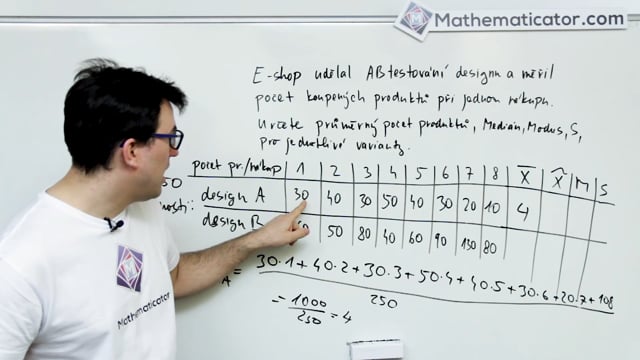 Mathematicator.com
E-shop udělal AB testování designu a měřil
počet koupených produktů při jednom nákupu.
Určete průměrný počet produktů, Medián, Modus, S,
pro jednotlivé varianty.
počet pr./nákup 1 2 3 4 5 6 7 8 X̄ X̃ M S
50
design A 30 40 30 50 40 30 20 10 4
nosti:
design B 50 80 40 60 90 130 80
A = 30·1+40·2+30·3+50·4+40·5+30·6+20·7+10·8
250
= 1000
250 = 4
Mathematicator